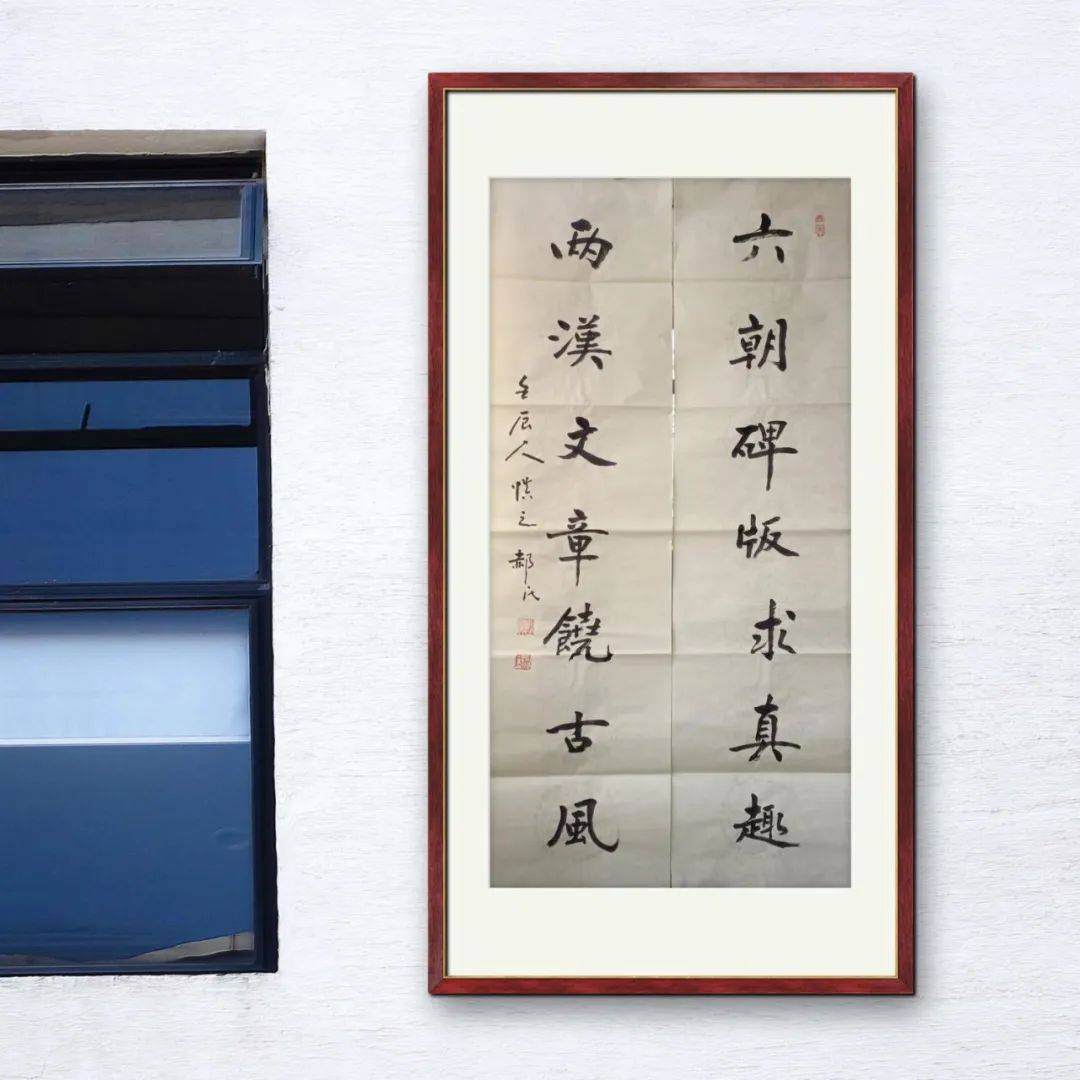 六朝碑版求真趣
兩漢文章饒古風
壬辰人慎之郝氏